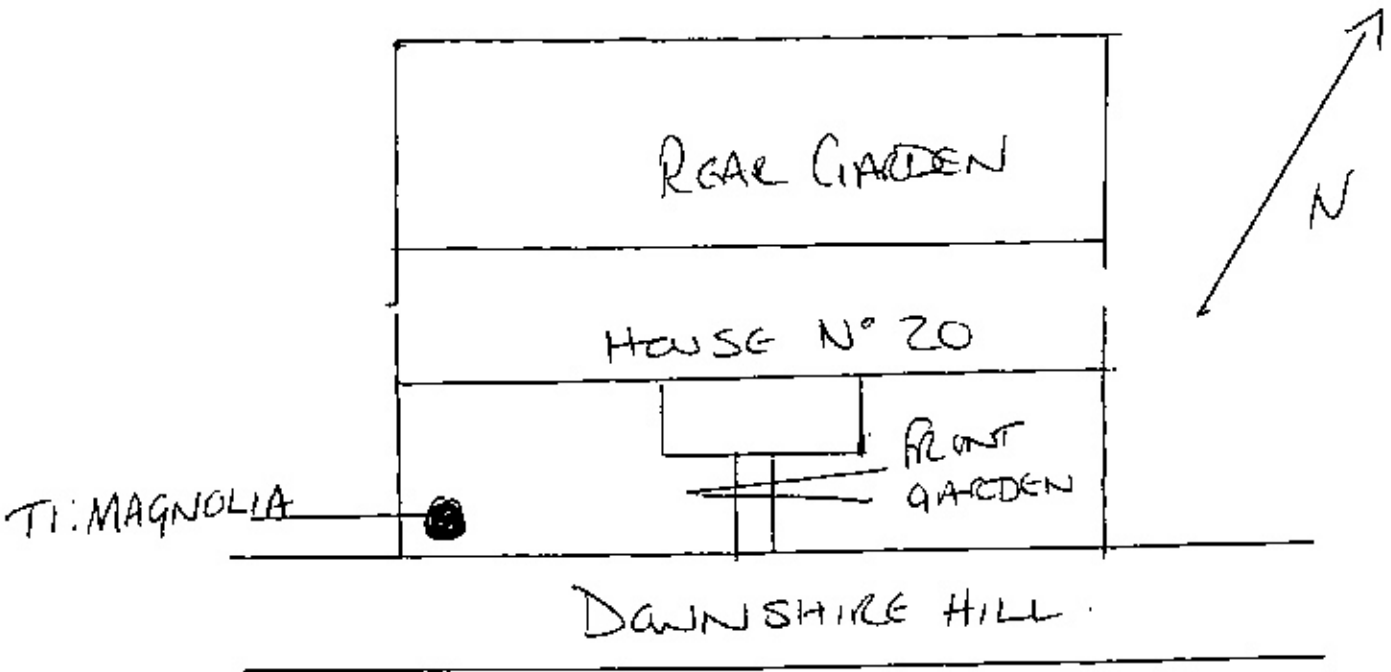 REAR GARDEN
N
HOUSE N° 20
FRONT
GARDEN
T1: MAGNOLIA
DOWNSHIRE HILL.